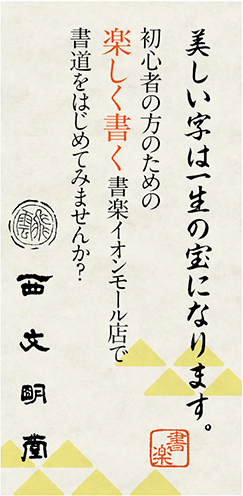 美しい字は一生の宝になります。
初心者の方のための
楽しく書く書楽イオンモール店で
書道をはじめてみませんか?
西文明堂
書楽